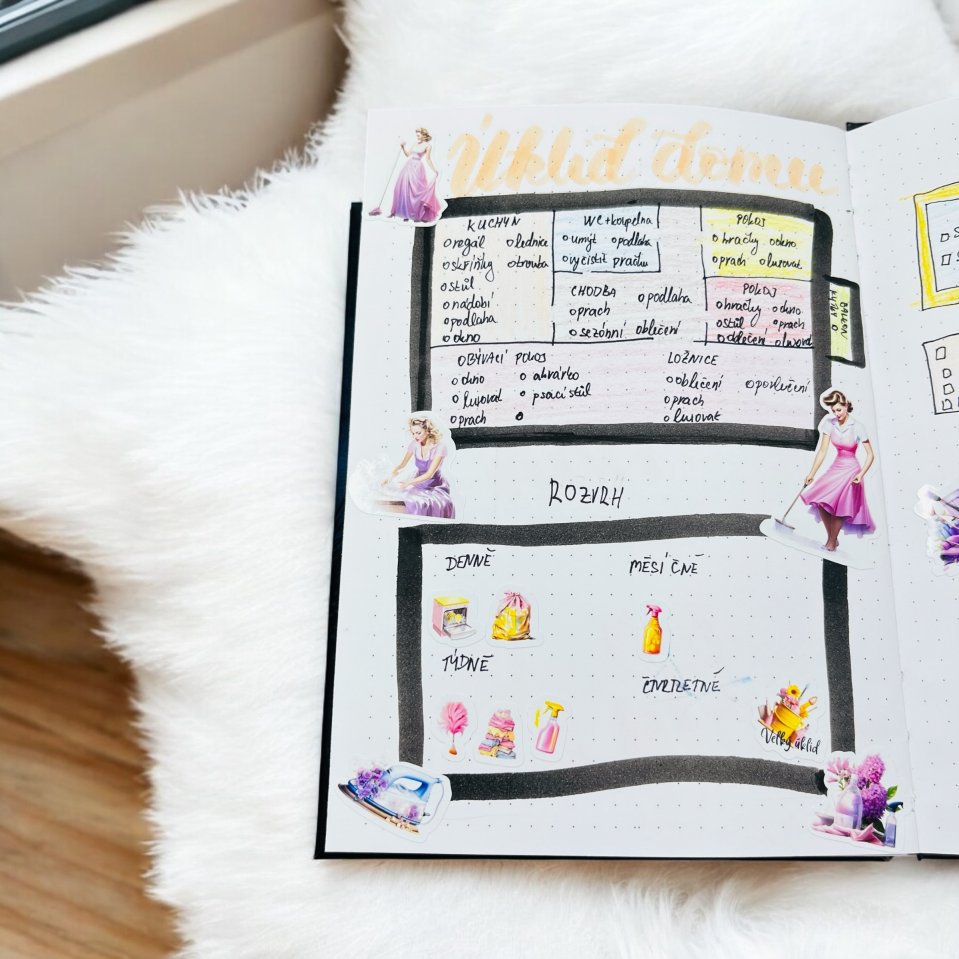 Úklid domu
KUCHYN
o regál o lednice
o skříňky o trouba
o stůl
o nádobí
o podlaha
o okno
WC + koupelna
o umýt o podlaha
o vyčistit pračku
CHODBA
o podlaha
o prach
o sezónní oblečení
POKOJ
o hračky o okno
o prach o luxovat
POKOJ
o hračky o okno
o stůl o prach
o oblečení o luxovat
BALKON
KYTKY O
OBÝVACÍ POKOJ
o okno o akvárko
o luxovat o psací stůl
o prach
LOŽNICE
o oblečení o povlečení
o prach
o luxovat
ROZVRH
DENNĚ
TÝDNĚ
MĚSÍČNĚ
ČTVRTLETNĚ
Velký úklid